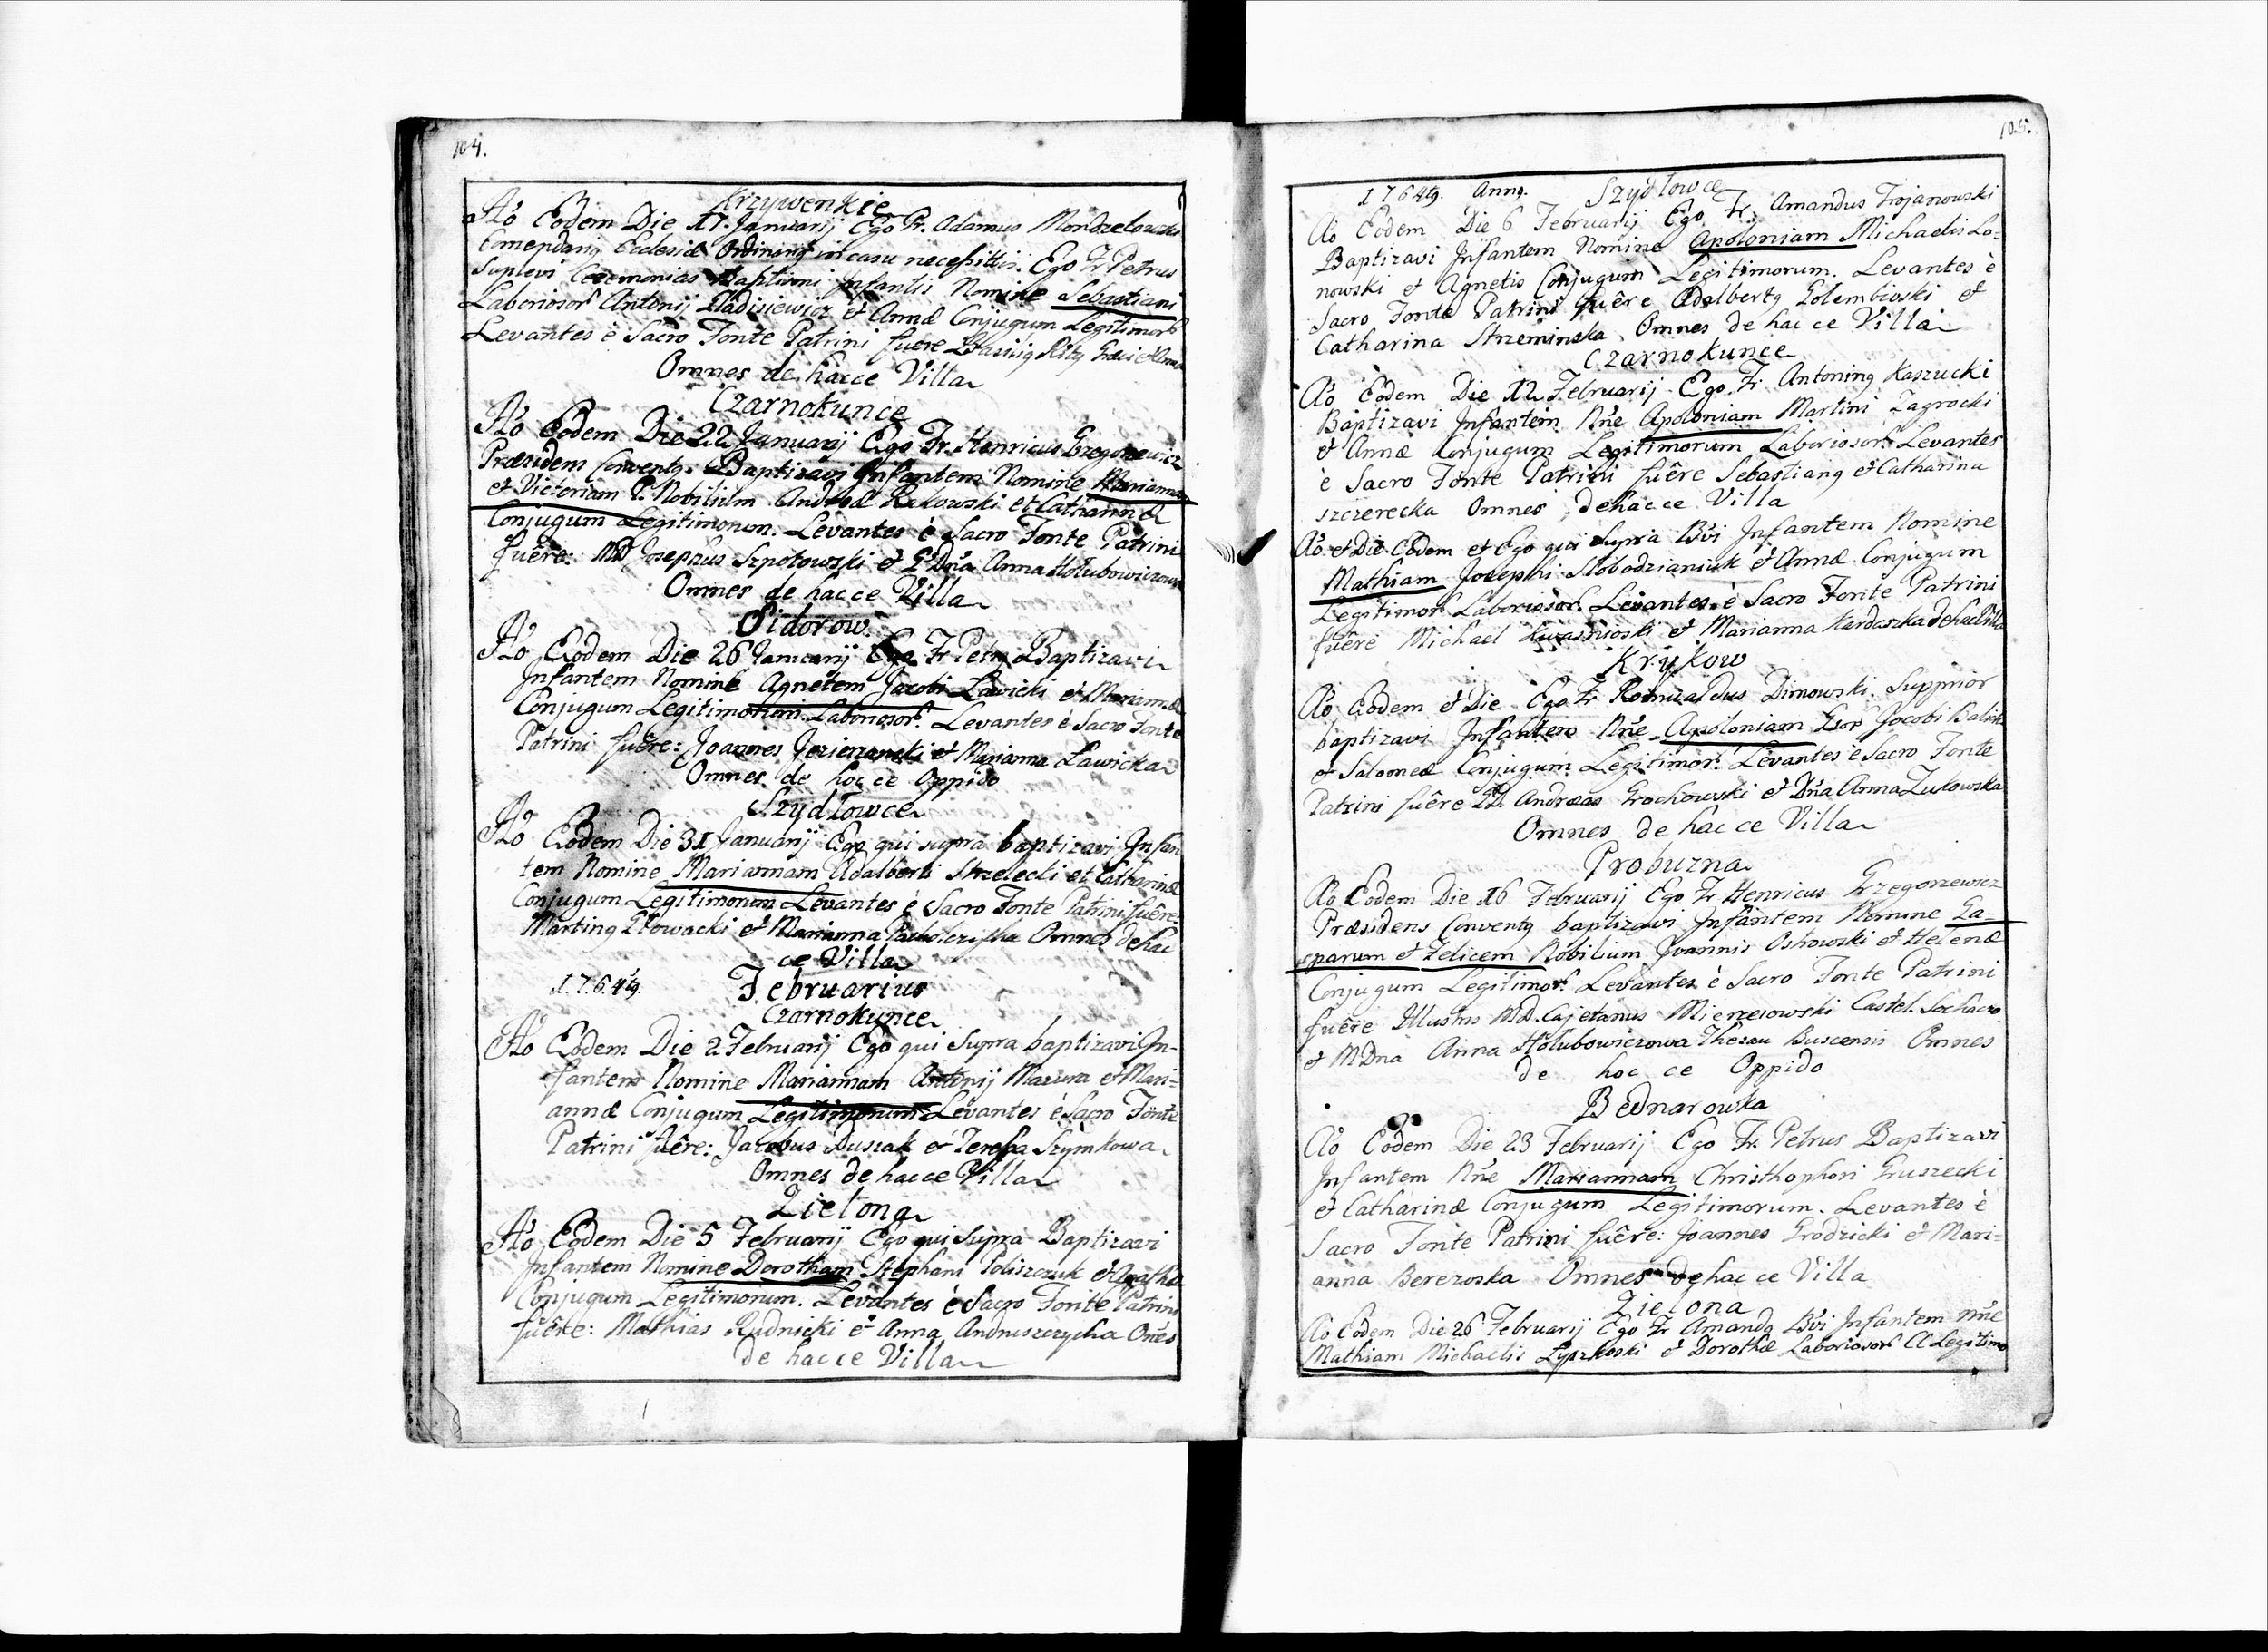 104.
Krzywenkie
Ao Eodem Die 17. Januarij Ego Fr. Adamus
Comendariq Ecclesiæ in casu necessittis. Ego Fr Petrus
Suplevi Ceremonias Baptismi Infantis Nomine Sebastiani
Laboriosor Antonij et Annæ Conjugum Legitimor
Levantes è Sacro Fonte Patrini fuêre
Omnes de hacce Villa
Czarnokunce
Ao Eodem Die 22 Januarij Ego Fr. Henricus Grzegorzewicz
Præsidem Conventq. Baptizavi Infantem Nomine Mariannam
et Victoriam G. Nobilium Andreæ Rakowski et Catharinæ
Conjugum Legitimorum. Levantes è Sacro Fonte Patrini
fuêre: MD Josephus Szpotowski et G Dna Anna Hołubowiczowa
Omnes de hac ce Villa
Sidorow
Ao Eodem Die 26 Januarij Ego Fr Petrq Baptizavi
Infantem Nomine Agnetem Jacobi Ławicki et Mariannæ
Conjugum Legitimorum. Laboriosor. Levantes è Sacro Fonte
Patrini fuêre: Joannes et Marianna Ławicka
Omnes de hoc ce Oppido
Szydłowce
Ao Eodem Die 31 Januarij Ego qui supra baptizavi Infan
tem Nomine Mariannam Adalberti Strzelecki et Catharinæ
Conjugum Legitimorum Levantes è Sacro Fonte Patrini fuêre
Martinq Głowacki et Marianna Omnes de hac
ce Villa
1.7.6.4tq. Februarius
Czarnokunce
Ao Eodem Die 2 Februarij Ego qui Supra baptizavi In-
fantem Nomine Mariannam Antonij Mazura et Mari-
annæ Conjugum Legitimorum Levantes è Sacro Fonte
Patrini fuêre: Jacobus Duszak et Teressa Szymkowa
Omnes de hac ce Villa
Zielona
Ao Eodem Die 5 Februarij Ego qui Supra Baptizavi
Infantem Nomine Dorotham Stephani Poliszczuk et Agathæ
Conjugum Legitimorum. Levantes è Sacro Fonte Patrini
fuêre: Mathias Rudnicki et Anna Andruszczycha Oñes
de hac ce Villa
105.
1764tq. Annq. Szydłowce
Ao Eodem Die 6 Februarij Ego Fr. Amandus Trojanowski
Baptizavi Infantem Nomine Apoloniam Michaelis Lo-
nowski et Agnetis Conjugum Legitimorum. Levantes è
Sacro Fonte Patrini fuêre Adelbertq Golembioski et
Catharina Strzeminska Omnes de hac ce Villa
Czarnokunce
Ao Eodem Die 12 Februarij Ego Fr. Antoninq Kaszucki
Baptizavi Infantem Nñe Apoloniam Martini Zagrocki
et Annæ Conjugum Legitimorum Laboriosor. Levantes
è Sacro Fonte Patrini fuêre Sebastianq et Catharina
szczerecka Omnes de hac ce Villa
Ao et Die Eodem et Ego qui Supra Bvi Infantem Nomine
Mathiam Josephi Słobodzianiuk et Annæ Conjugum
Legitimor. Laboriosor. Levantes è Sacro Fonte Patrini
fuêre Michael Kwasnioski et Marianna Kardaszka de hac Villa
Krykow
Ao Eodem et Die Ego Fr Romualdus Dimowski Suppnior
baptizavi Infantem Nñe Apoloniam Gsor Jacobi
et Salomeæ Conjugum Legitimor. Levantes è Sacro Fonte
Patrini fuêre GD. Andreas Grochowski et Dña Anna Zukowska
Omnes de hac ce Villa
Probuzna
Ao Eodem Die 16 Februarij Ego Fr Henricus Grzegorzewicz
Præsidens Conventq baptizavi Infantem Nomine Ga-
sparum et Felicem Nobilium Joannis Ostrowski et Helenæ
Conjugum Legitimor. Levantes è Sacro Fonte Patrini
fuêre Illustris MD. Cajetanus Mierzeiowski Castel. Sochacz
et MDna Anna Hołubowiczowa Thesau Buscensis Omnes
de hoc ce Oppido
Bednarowka
Ao Eodem Die 23 Februarij Ego Fr. Petrus Baptizavi
Infantem Nñe Mariannam Christhophori Gruszecki
et Catharinæ Conjugum Legitimorum. Levantes è
Sacro Fonte Patrini fuêre: Joannes Grodzicki et Mari-
anna Berezoska Omnes de hac ce Villa
Zielona
Ao Eodem Die 26 Februarij Ego Fr Amandq Bvi Infantem Nñe
Mathiam Michaelis Łyszkoski et Dorothæ Laboriosor CC Legitimo